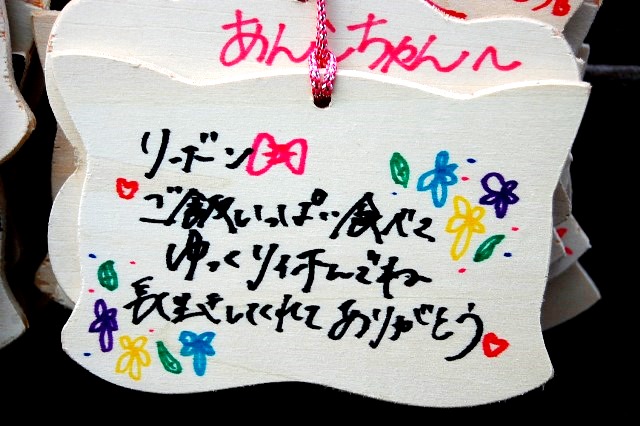 あんじちゃん～
リボン
ご飯いっぱい食べて
ゆっくり
長生きしてくれてありがとう